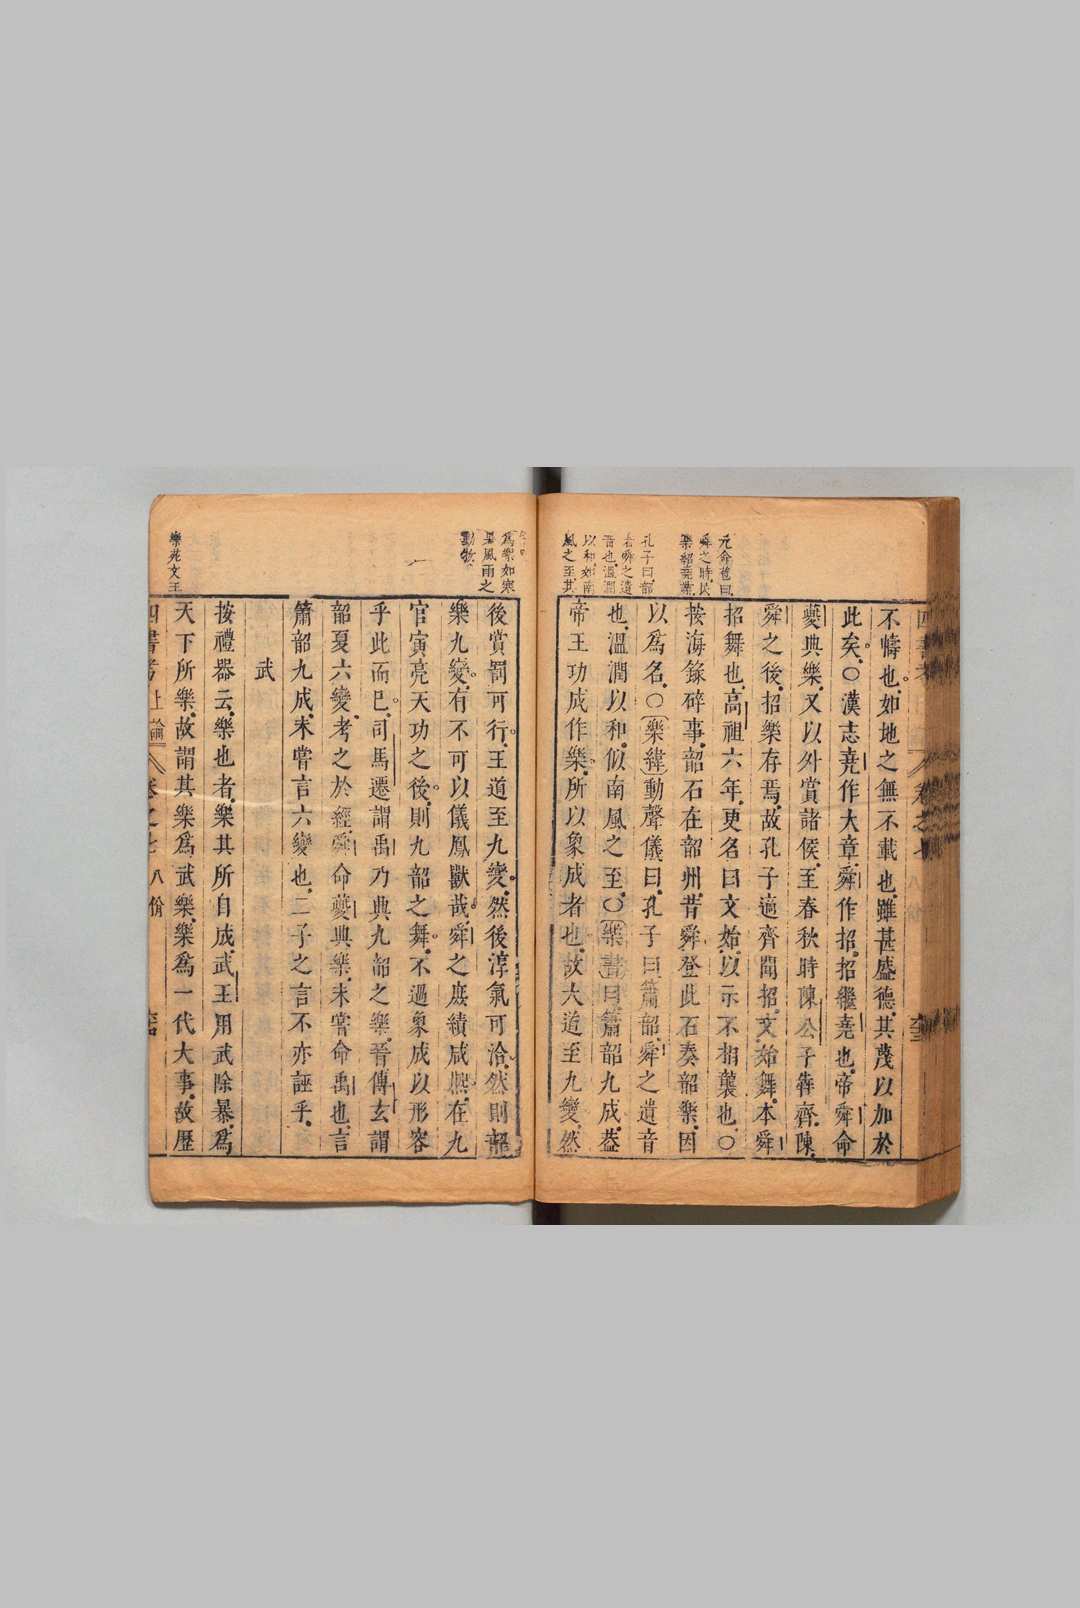 元命苞曰
舜之時民
樂紹堯業
孔子曰韶
者舜之遺
音也溫潤
以和如南
風之至其
不幬也如地之無不載也雖甚盛德其蔑以加於
此矣○漢志堯作大章舜作招招繼堯也帝舜命
夔典樂又以外賞諸侯至春秋時陳公子犇齊陳
舜之後招樂存焉故孔子適齊聞招文始舞本舜
招舞也高祖六年更名曰文始以示不相襲也○
按海錄碎事韶石在韶州昔舜登此石奏韶樂因
以爲名○樂緯動聲儀曰孔子曰簫韶舜之遺音
也溫潤以和似南風之至○樂書曰簫韶九成葢
帝王功成作樂所以象成者也故大道至九變然
爲樂如寒
暑風雨之
動物
後賞罰可行王道至九變然後淳氣可洽然則韶
樂九變有不可以儀鳳獸哉舜之庶績咸熙在九
官寅亮天功之後則九韶之舞不過象成以形容
乎此而已司馬遷謂禹乃典九韶之樂晉傳玄謂
韶夏六變考之於經舜命夔典樂未嘗命禹也言
簫韶九成未嘗言六變也二子之言不亦誣乎
武
按禮器云樂也者樂其所自成武王用武除暴爲
天下所樂故謂其樂爲武樂樂爲一代大事故歷
樂苑文王
四書考 上論 卷之七 八佾